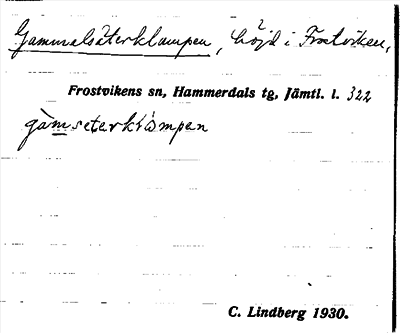 Gammalsäterklumpen, höjd i Frostviken,
Frostvikens sn, Hammerdals tg, Jämtl. l. 322
C. Lindberg 1930.